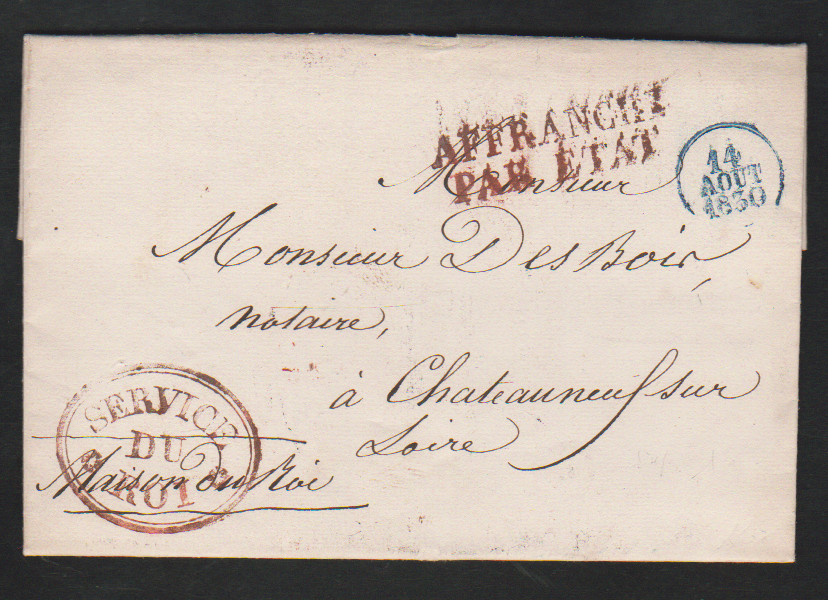 AFFRANCHI
PAR ETAT
14
AOUT
1830
Monsieur
Monsieur DesBois,
notaire,
à Chateauneuf sur
Loire
SERVICE
DU
ROI
Maison du Roi